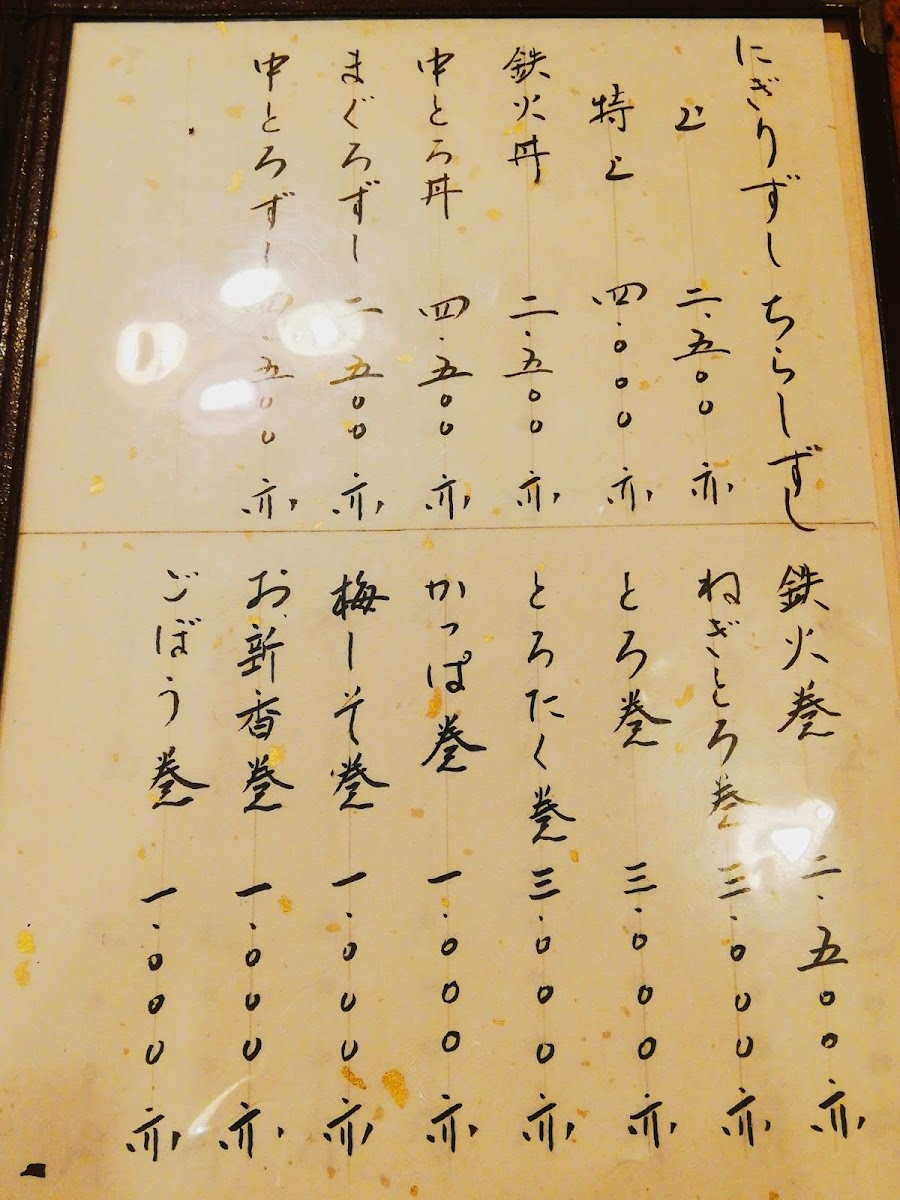 にぎりずし ちらしずし
上 二.五〇〇円
特上 四.〇〇〇円
鉄火丼 二.五〇〇円
中とろ丼 四.五〇〇円
まぐろずし 二.五〇〇円
中とろずし 四.五〇〇円
鉄火巻 二.五〇〇円
ねぎとろ巻 三.〇〇〇円
とろ巻 三.〇〇〇円
とろたく巻 三.〇〇〇円
かっぱ巻 一.〇〇〇円
梅しそ巻 一.〇〇〇円
お新香巻 一.〇〇〇円
ごぼう巻 一.〇〇〇円